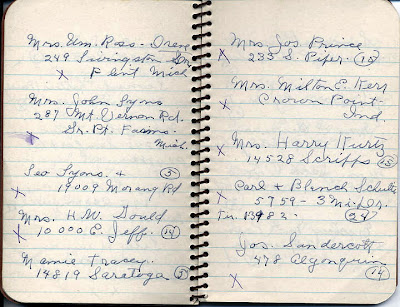 Mrs. Wm. Ross - Drexe
249 Livingston Dr.
X Flint Mich
Mrs. John Syms
287 Mt. Vernon Rd.
Gr. Pt. Farms.
Mich.
Geo Lyons. + (5)
X 19009 Morang Rd
Mrs. H. W. Gould
X 10000 E. Jeff. (14)
Mamie Tracey.
X 14819 Saratoga (5)
Mrs. Jos Prince
X 233 S. Piper. (15)
Mrs. Milton E. Kerr
Crown Point
Ind.
Mrs. Harry Kurtz
X 14528 Scripps (15)
Carl + Blanch Schultz
X 5759 - 3 Mi. Dr.
Tu. 13982. (24)
Jos. Sandercott
478 Algonquin
X (14)